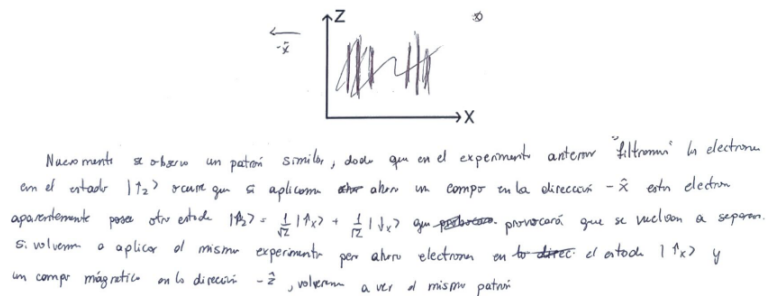 Z
-x̂
X
Nuevamente se observo un patrón similar, dado que en el experimento anterior "filtramos" la electrones
con el estado |↑z⟩ ocurre que si aplicamos ahora un campo en la dirección -x̂ estos electron
aparentemente posee otro estado |↑z⟩ = 1/√2 |↑x⟩ + 1/√2 |↓x⟩ que provocará que se vuelvan a separar.
Si volvemos a aplicar el mismo experimento pero ahora electrones en el estado |↑x⟩ y
un campo mágnetico en la dirección -ẑ, volveremos a ver el mismo patrón